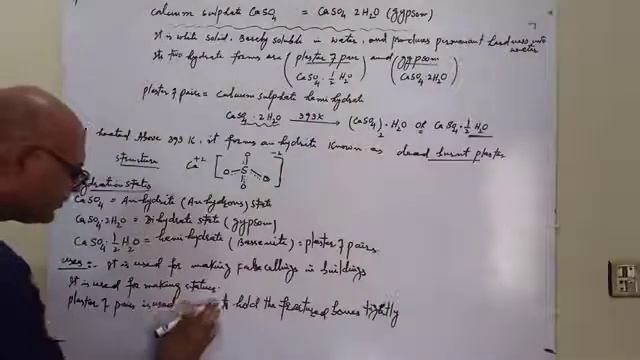 calcium sulphate CaSO4 = CaSO4 2H2O (gypsom)
It is white solid, Barely soluble in water, and produces permanent hardness into water
Its two hydrate forms are (plaster of pair CaSO4 · 1/2 H2O) and (gypsom CaSO4 2H2O)
plaster of pairs = calcium sulphate hemihydrate
CaSO4 · 2H2O 393K → (CaSO4)2 · H2O or CaSO4 · 1/2 H2O
heated Above 393 K, it forms an hydrite known as dead burnt plaster
structure Ca+2 [O S O O O]-2
hydration states
CaSO4 = An-hydrite (Anhydrous) state
CaSO4 · 2H2O = Di-hydrate state (gypsom)
CaSO4 · 1/2 H2O = hemi-hydrate (Bassenite) = plaster of pairs
uses:- It is used for making False ceilings in buildings
It is used for making statues.
plaster of pairs is used hold the fractured bones tightly